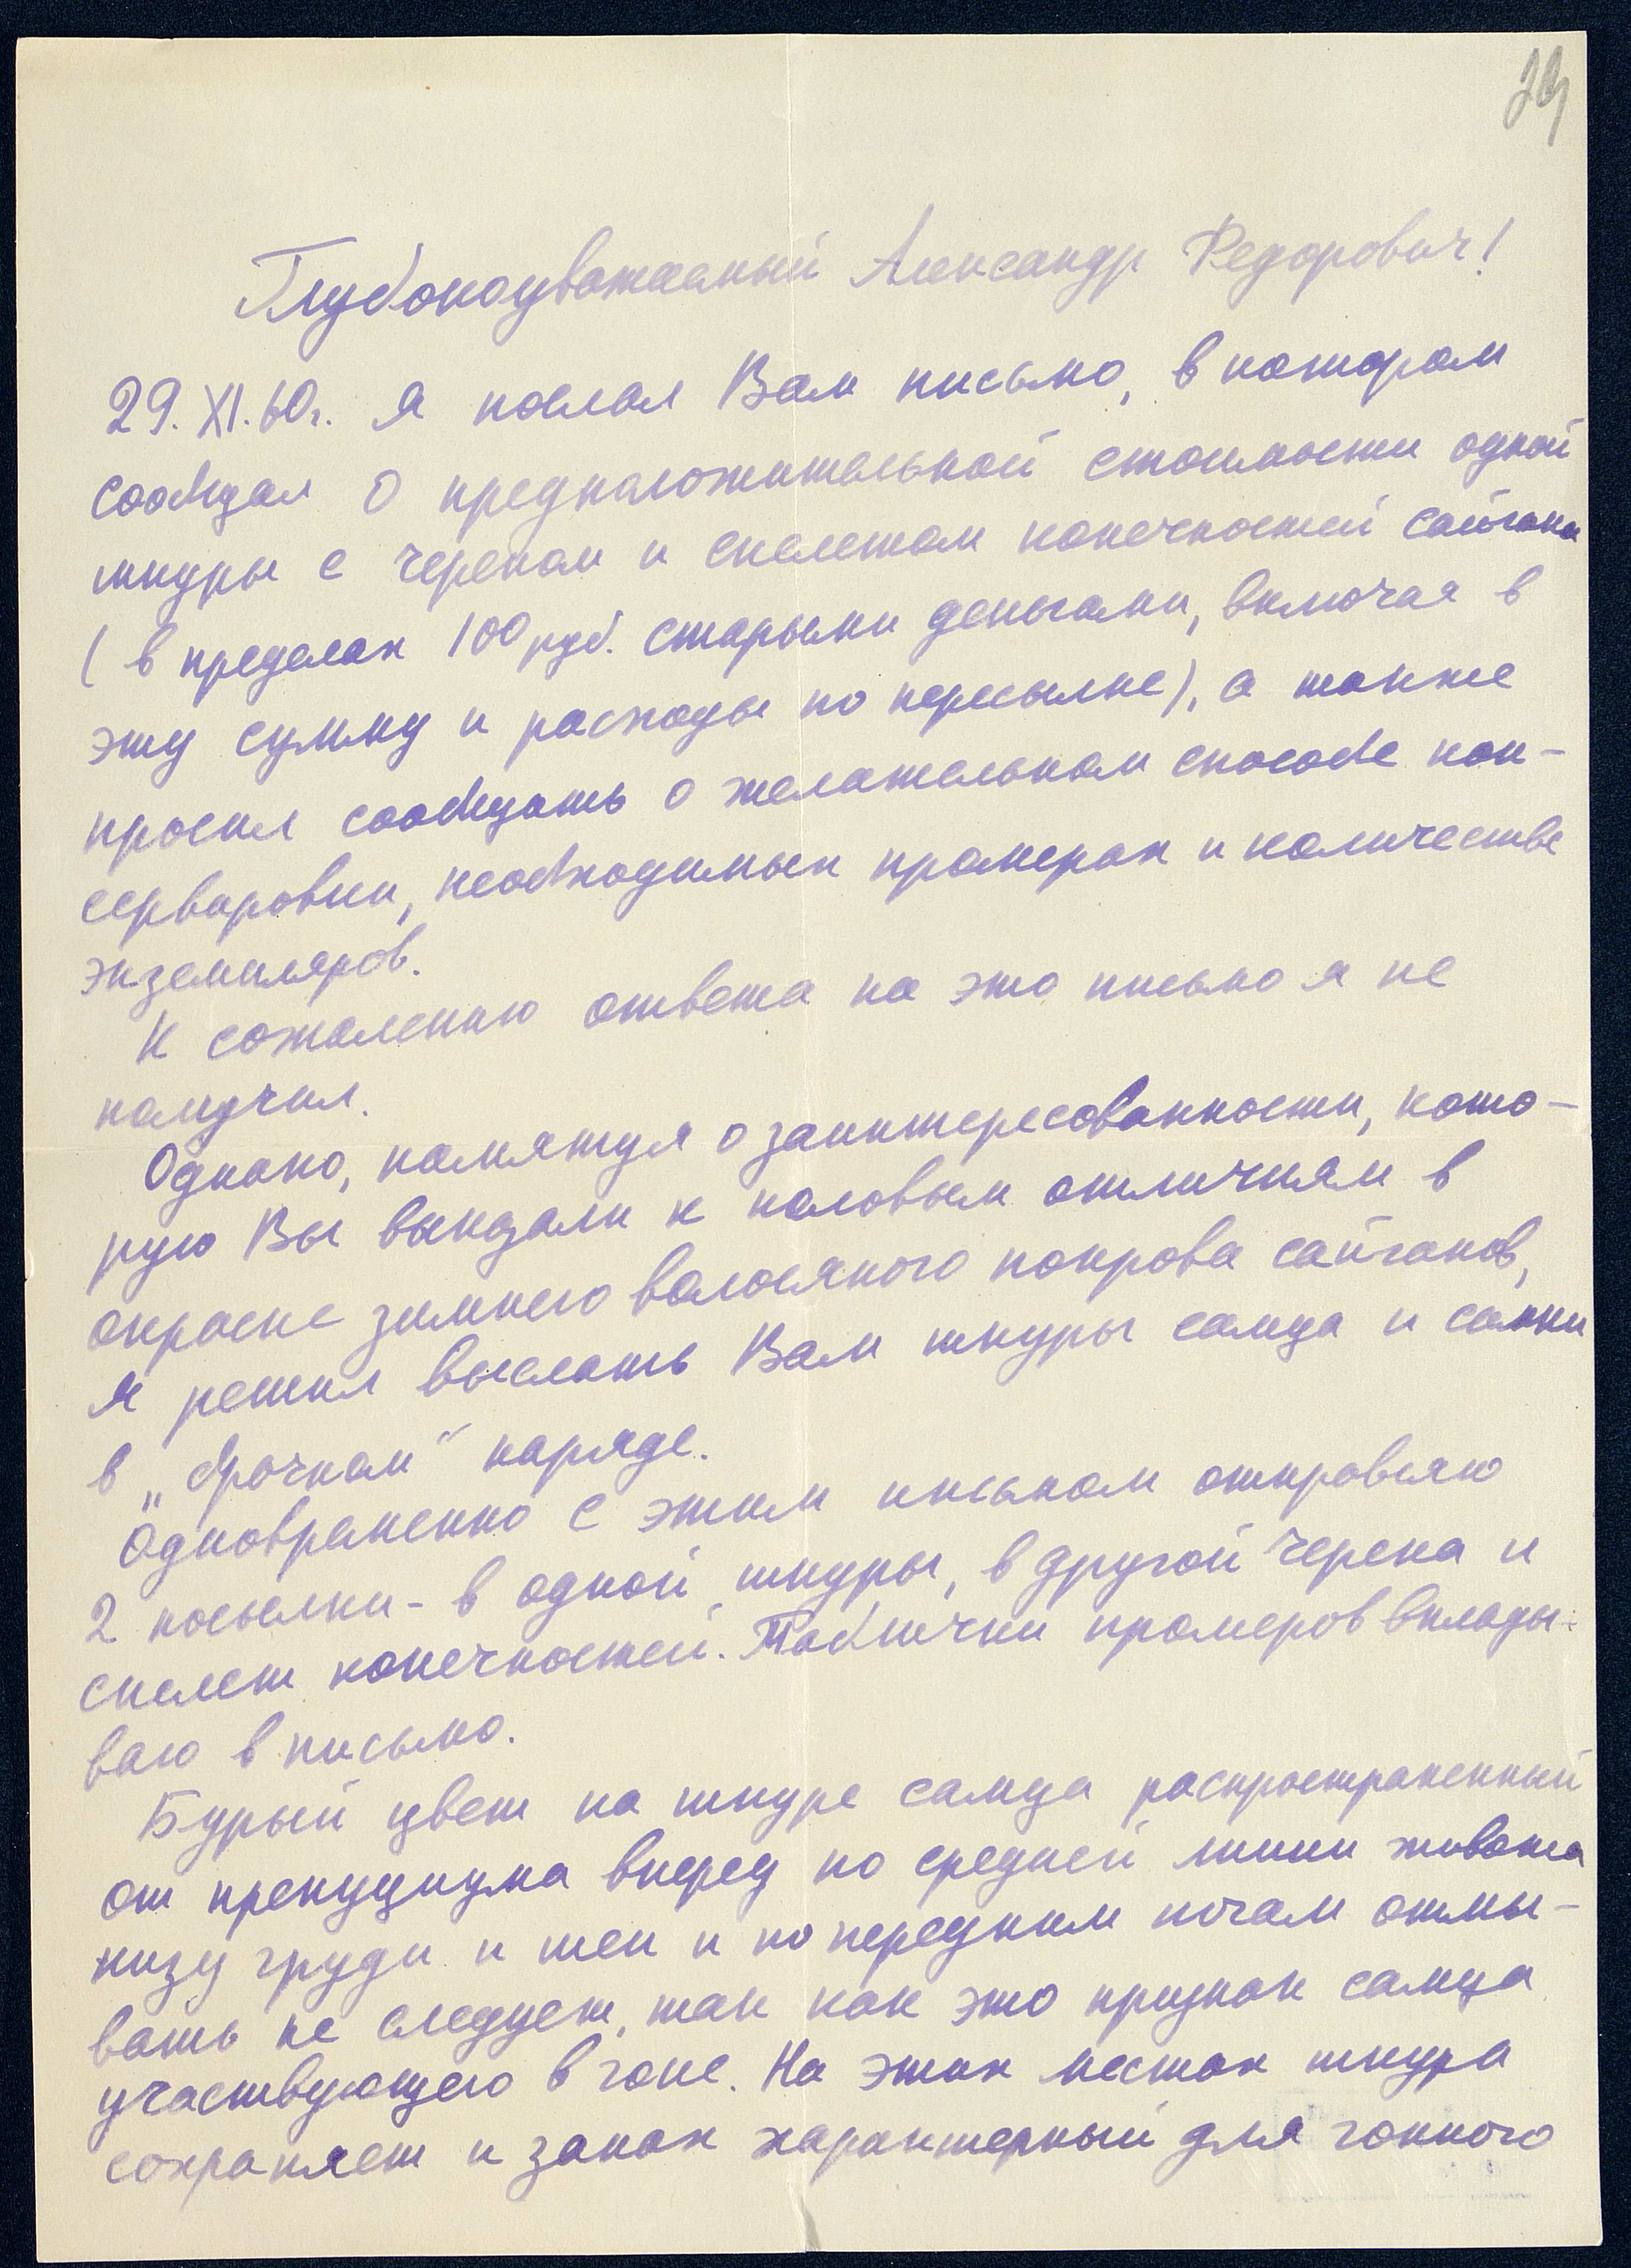 29
Глубокоуважаемый Александр Федорович!
29.XI.60г. я послал Вам письмо, в котором
сообщал о предположительной стоимости одной
шкуры с черепом и скелетом конечностей сайгака
(в пределах 100 руб. старыми деньгами, включая в
эту сумму и расходы по пересылке), а также
просил сообщить о желательном способе кон-
сервировки, необходимых промерах и количестве
экземпляров.
К сожалению ответа на это письмо я не
получил.
Однако, памятуя о заинтересованности, кото-
рую Вы выказали к половым отличиям в
окраске зимнего волосяного покрова сайгаков,
я решил выслать Вам шкуры самца и самки
в „брачном" наряде.
Одновременно с этим письмом отправляю
2 посылки - в одной шкуры, в другой черепа и
скелет конечностей. Таблички промеров вклады-
ваю в письмо.
Бурый цвет на шкуре самца распространенный
от препуциума вперед по средней линии живота
низу груди и шеи и по передним ногам отмы-
вать не следует, так как это признак самца
участвующего в гоне. На этих местах шкура
сохраняет и запах характерный для гонного